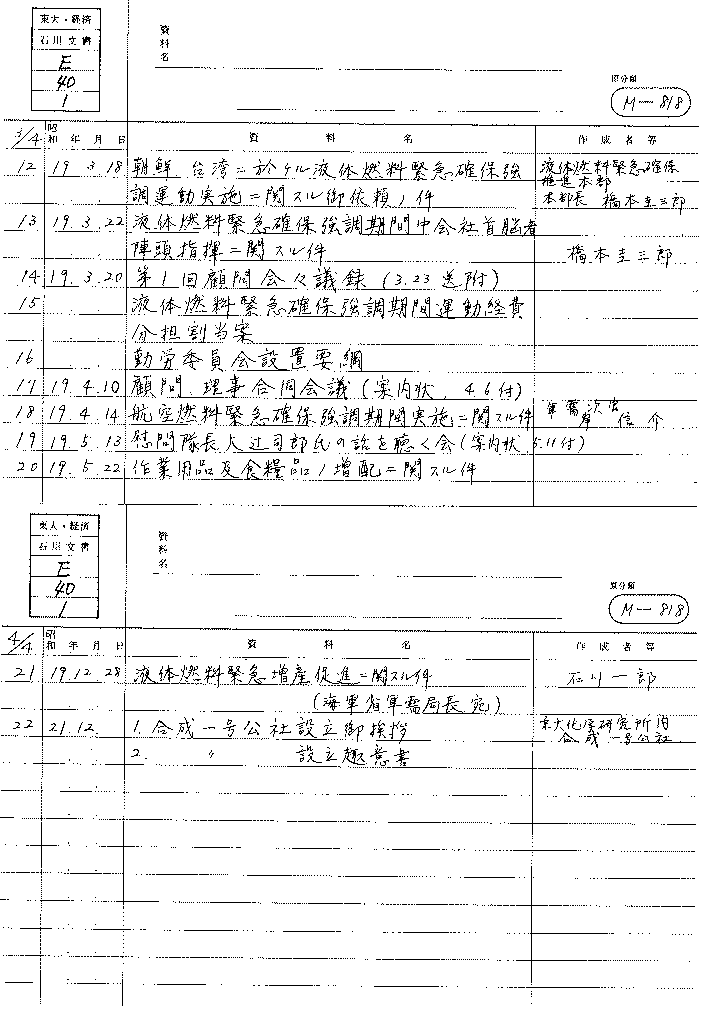 東大・経済
石川文書
E
40
1
資料名
原分類
M-818
3/4 昭和 年 月 日 資料名 作成者等
12 19 3.18 朝鮮、台湾ニ於ケル液体燃料緊急確保強 液体燃料緊急確保
推進本部
調運動実施ニ関スル御依頼ノ件 本部長 橋本圭三郎
13 19.3.22 液体燃料緊急確保強調期間中会社首脳者
陣頭指揮ニ関スル件 橋本圭三郎
14 19.3.20 第1回顧問会々議録(3.23送附)
15 液体燃料緊急確保強調期間運動経費
分担割当案
16 勤労委員会設置要綱
17 19.4.10 顧問、理事合同会議(案内状、4.6付)
18 19.4.14 航空燃料緊急確保強調期間実施ニ関スル件 軍需次官
岸 信介
19 19.5.13 慰問隊長大辻司郎氏の話を聴く会(案内状5.11付)
20 19.5.22 作業用品及食糧品ノ増配ニ関スル件
東大・経済
石川文書
E
40
1
資料名
原分類
M-818
4/4 昭和 年 月 日 資料名 作成者等
21 19.12.28 液体燃料緊急増産促進ニ関スル件 石川一郎
(海軍省軍需局長宛)
22 21.12. 1. 合成一号公社設立御挨拶 東大化学研究所内
合成一号公社
2. 〃 設立趣意書